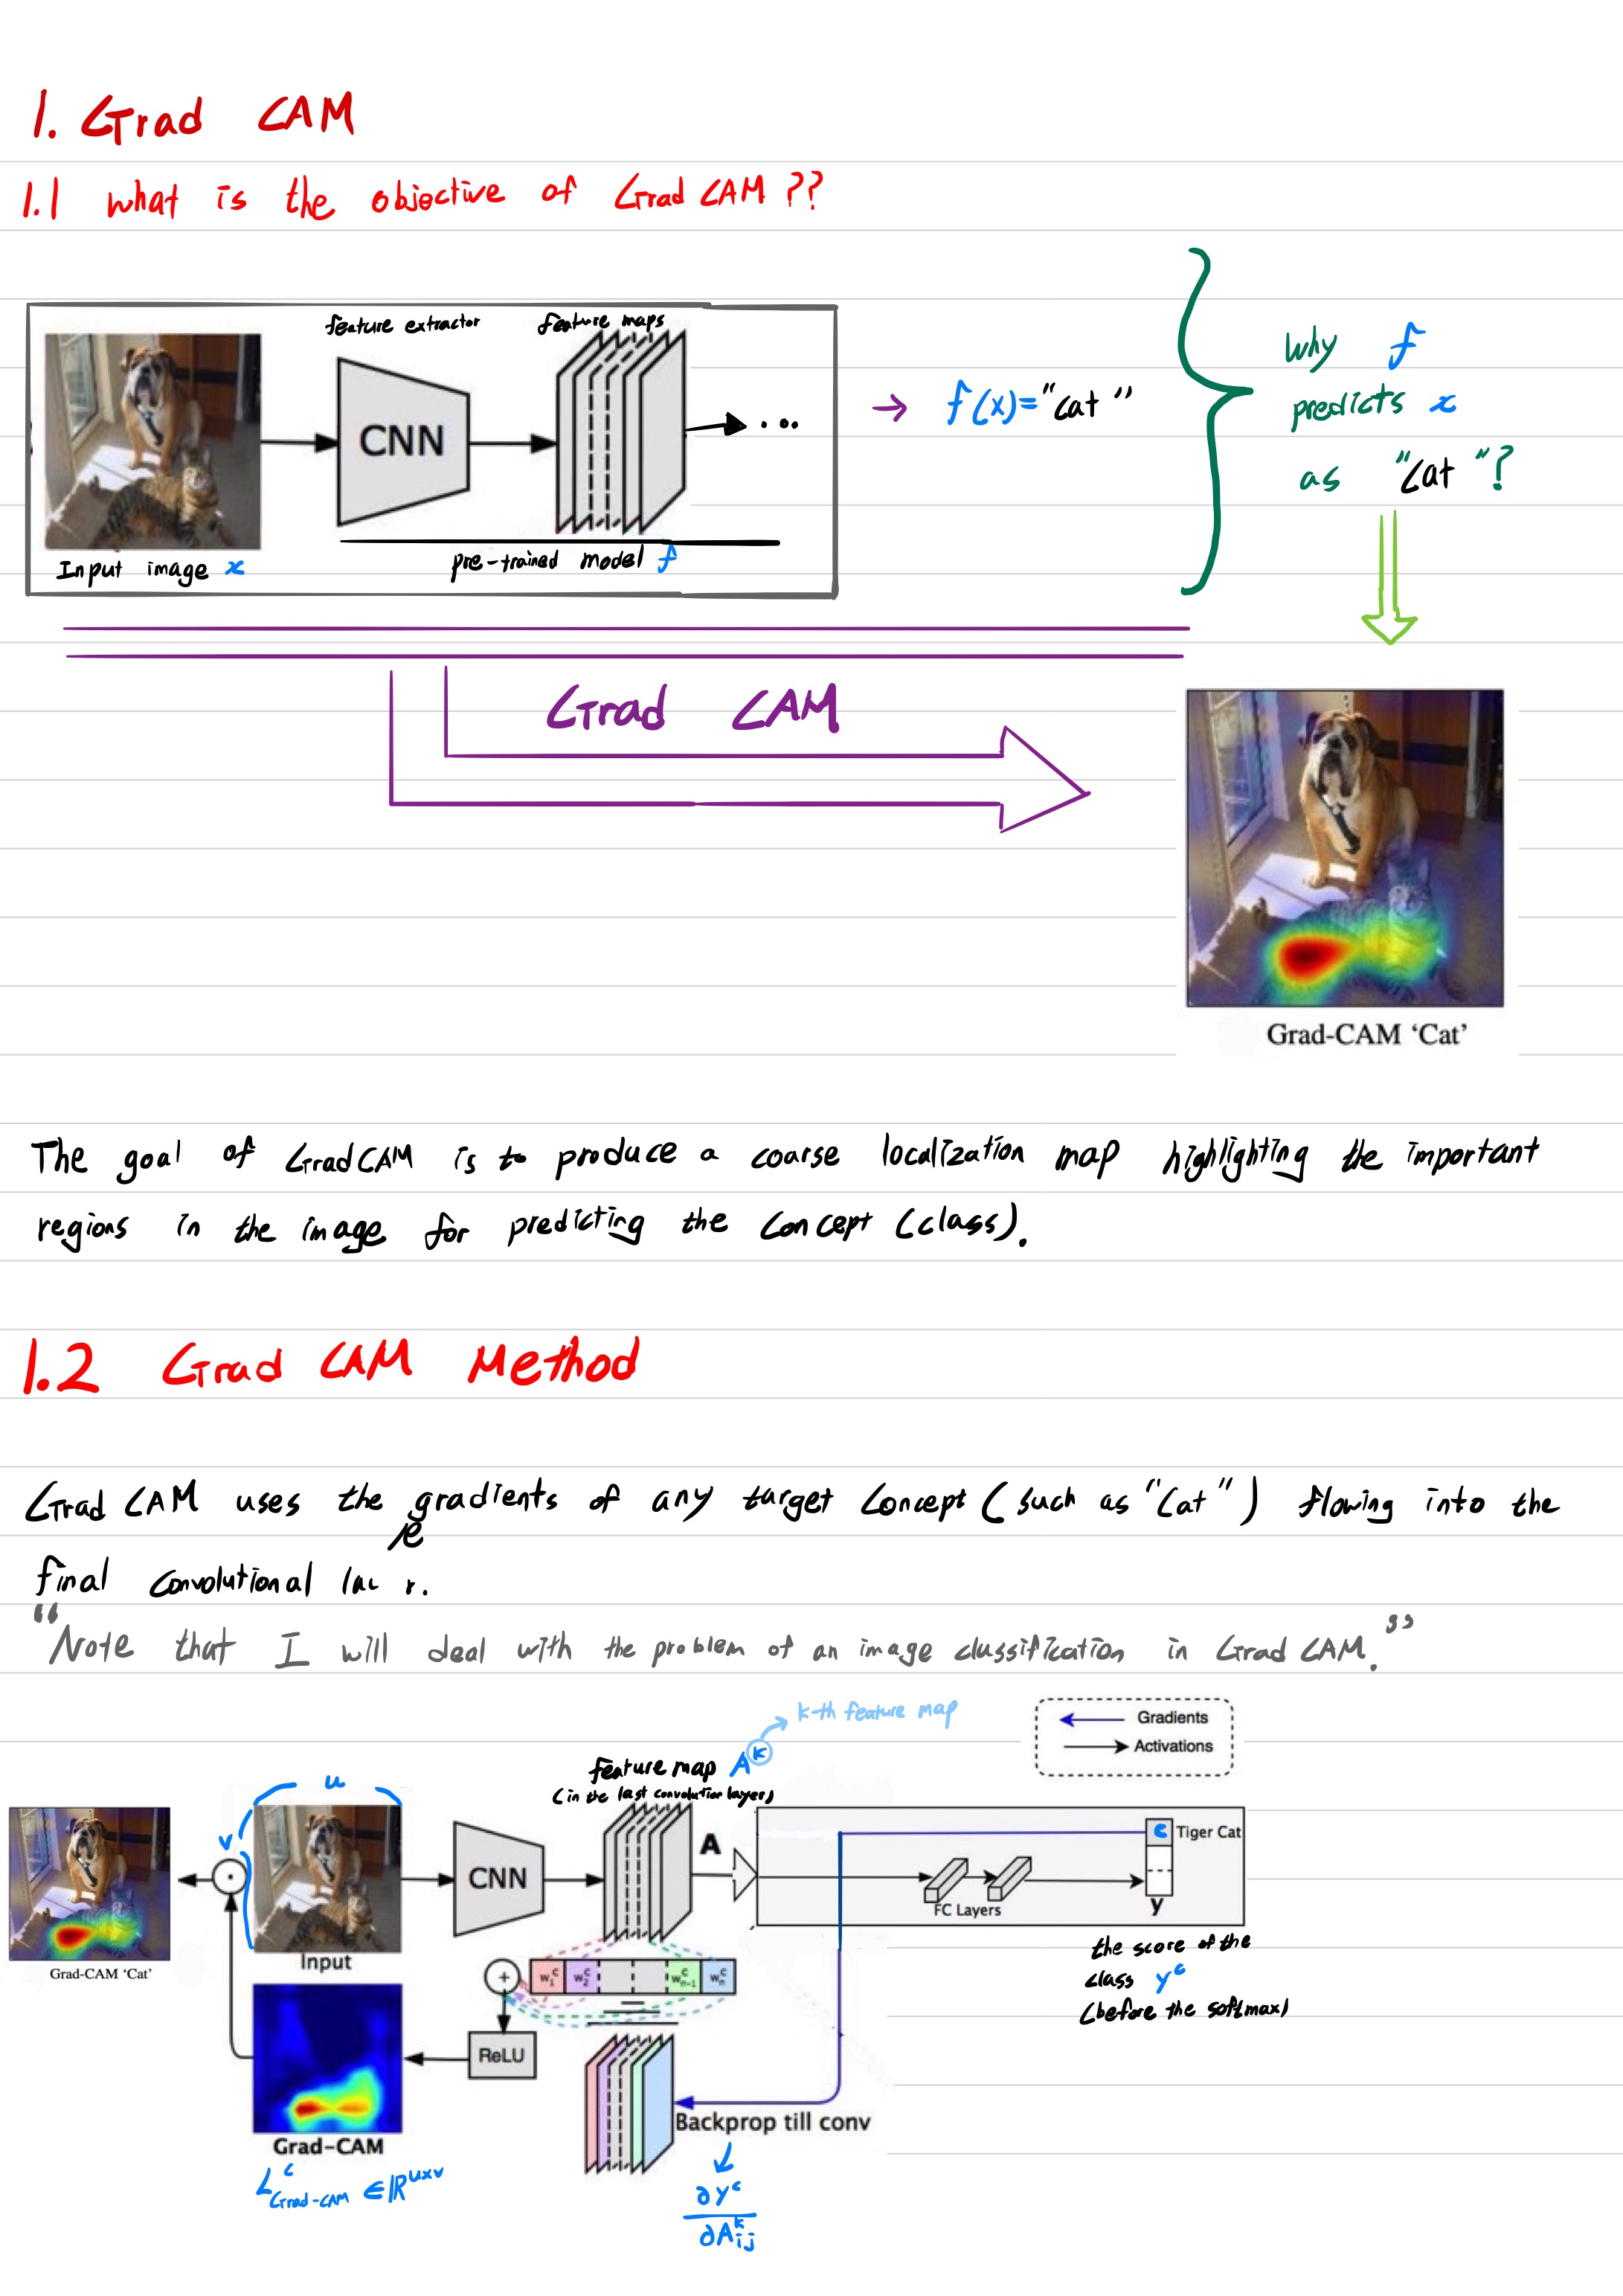 1. Grad CAM
1.1 What is the objective of Grad CAM ??
feature extractor
feature maps
CNN
Input image x
pre-trained model f
→ f(x)="Cat"
Why f
predicts x
as "Cat"?
Grad CAM
Grad-CAM ‘Cat’
The goal of Grad CAM is to produce a coarse localization map highlighting the important
regions in the image for predicting the concept (class).
1.2 Grad CAM Method
Grad CAM uses the gradients of any target concept (such as "Cat") flowing into the
final convolutional
“Note that I will deal with the problem of an image classification in Grad CAM.”
k-th feature map
Gradients
Activations
feature map A^k
(in the last convolution layer)
u
v
CNN
A
c Tiger Cat
FC Layers
y
Input
Grad-CAM ‘Cat’
the score of the
class y^c
(before the softmax)
+ w_1^c w_2^c w_{n-1}^c w_n^c
ReLU
Backprop till conv
Grad-CAM
L^c_{Grad-CAM} ∈ ℝ^{u×v}
∂y^c
∂A^k_{ij}